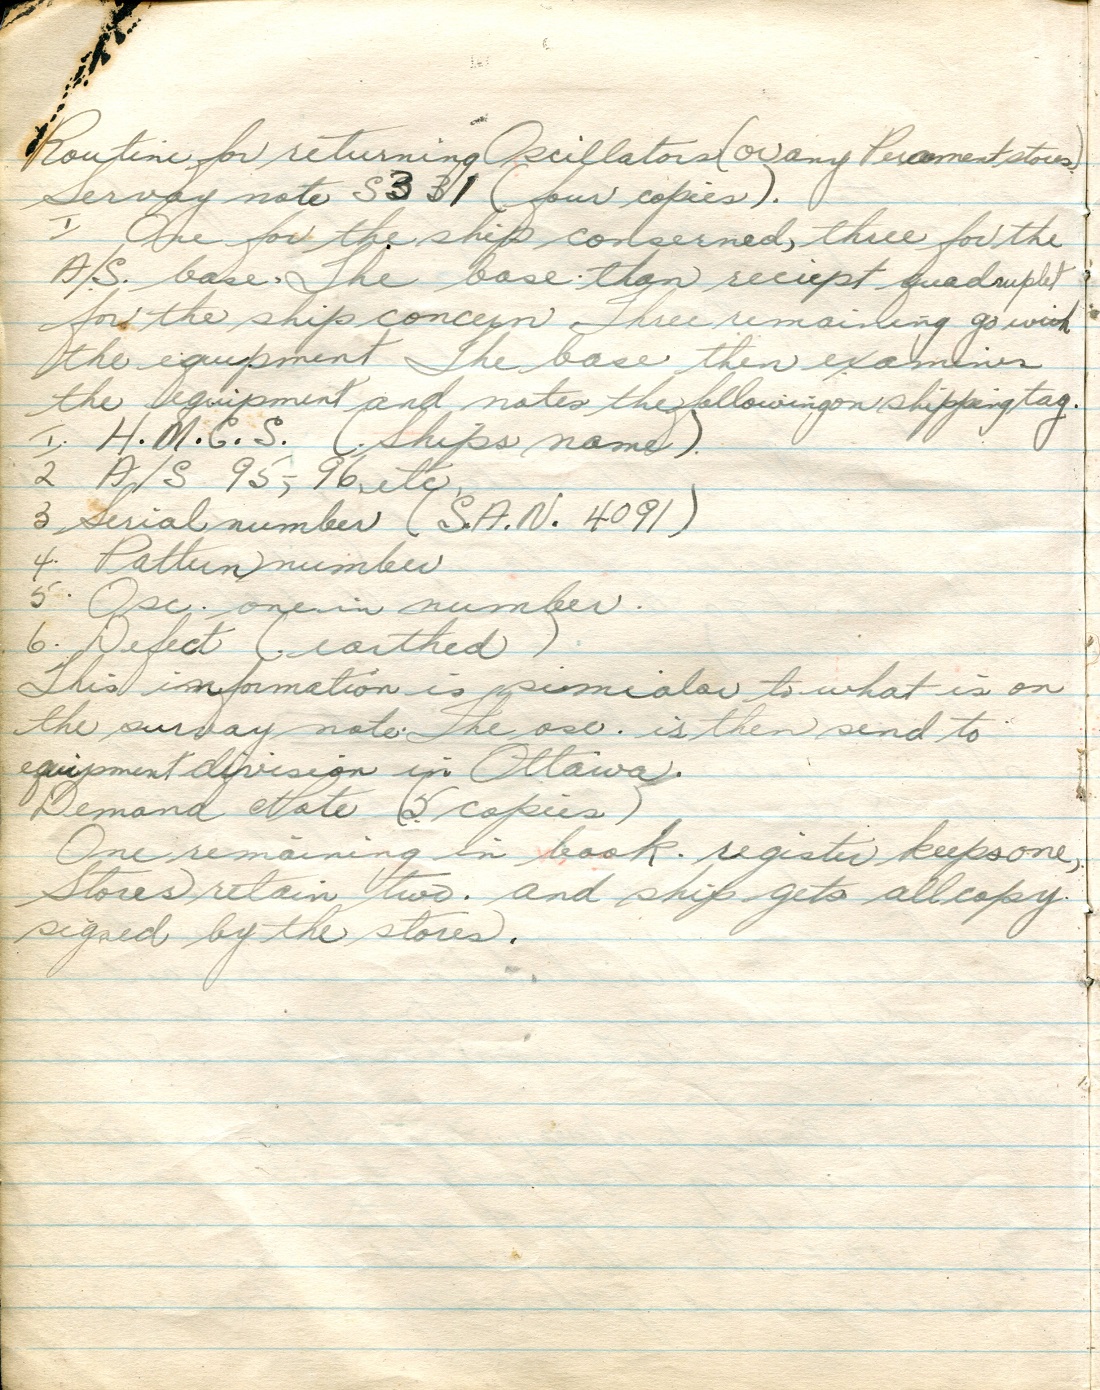 Routine for returning Oscillators (or any Perement stores)
Servay note S331 (four copies).
1 One for the ship conserned, three for the
A/S. base. The base than reciept quadruplet
for the ship concern Three remaining go with
the equipment The base then examines
the equipment and notes the following on shipping tag.
1. H.M.C.S. (Ships name).
2 A/S 95, 96, etc.
3 Serial number (S.A.N. 4091)
4. Pattern number
5. Osc. one in number.
6. Defect (earthed)
This information is simialar to what is on
the survay note. The osc. is then send to
equipment division in Ottawa.
Demand Note (5 copies)
One remaining in book. register keeps one,
Stores retain two. and ship gets all copy
signed by the stores.